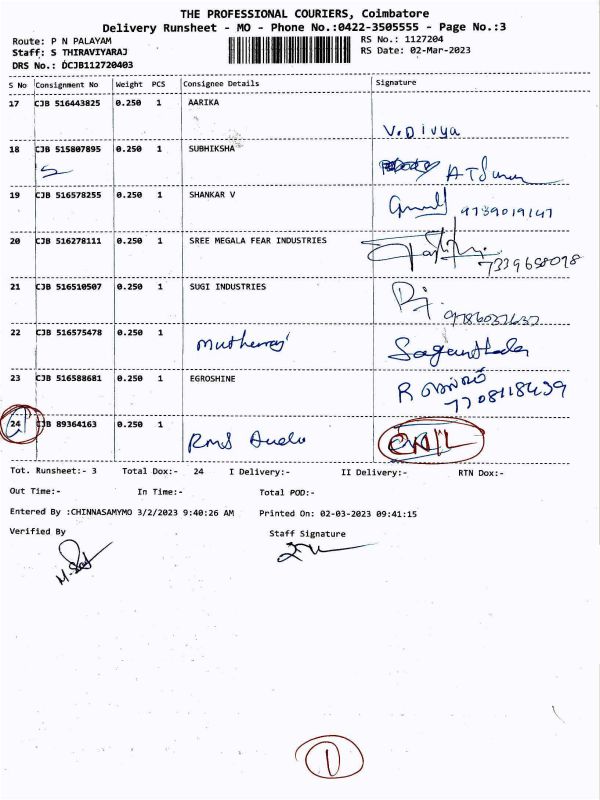 THE PROFESSIONAL COURIERS, Coimbatore
Delivery Runsheet - MO - Phone No.:0422-3505555 - Page No.:3
Route: P N PALAYAM
RS No.: 1127204
Staff: S THIRAVIYARAJ
RS Date: 02-Mar-2023
DRS No.: DCJB112720403
S No Consignment No Weight PCS Consignee Details Signature
17 CJB 516443825 0.250 1 AARIKA
V.Divya
18 CJB 515807895 0.250 1 SUBHIKSHA
19 CJB 516578255 0.250 1 SHANKAR V
9739019147
20 CJB 516278111 0.250 1 SREE MEGALA FEAR INDUSTRIES
7339658098
21 CJB 516510507 0.250 1 SUGI INDUSTRIES
22 CJB 516575478 0.250 1
23 CJB 516588681 0.250 1 EGROSHINE
7708118499
24 CJB 89364163 0.250 1
RMS
Tot. Runsheet:- 3 Total Dox:- 24 I Delivery:- II Delivery:- RTN Dox:-
Out Time:- In Time:- Total POD:-
Entered By :CHINNASAMYMO 3/2/2023 9:40:26 AM Printed On: 02-03-2023 09:41:15
Verified By Staff Signature
1